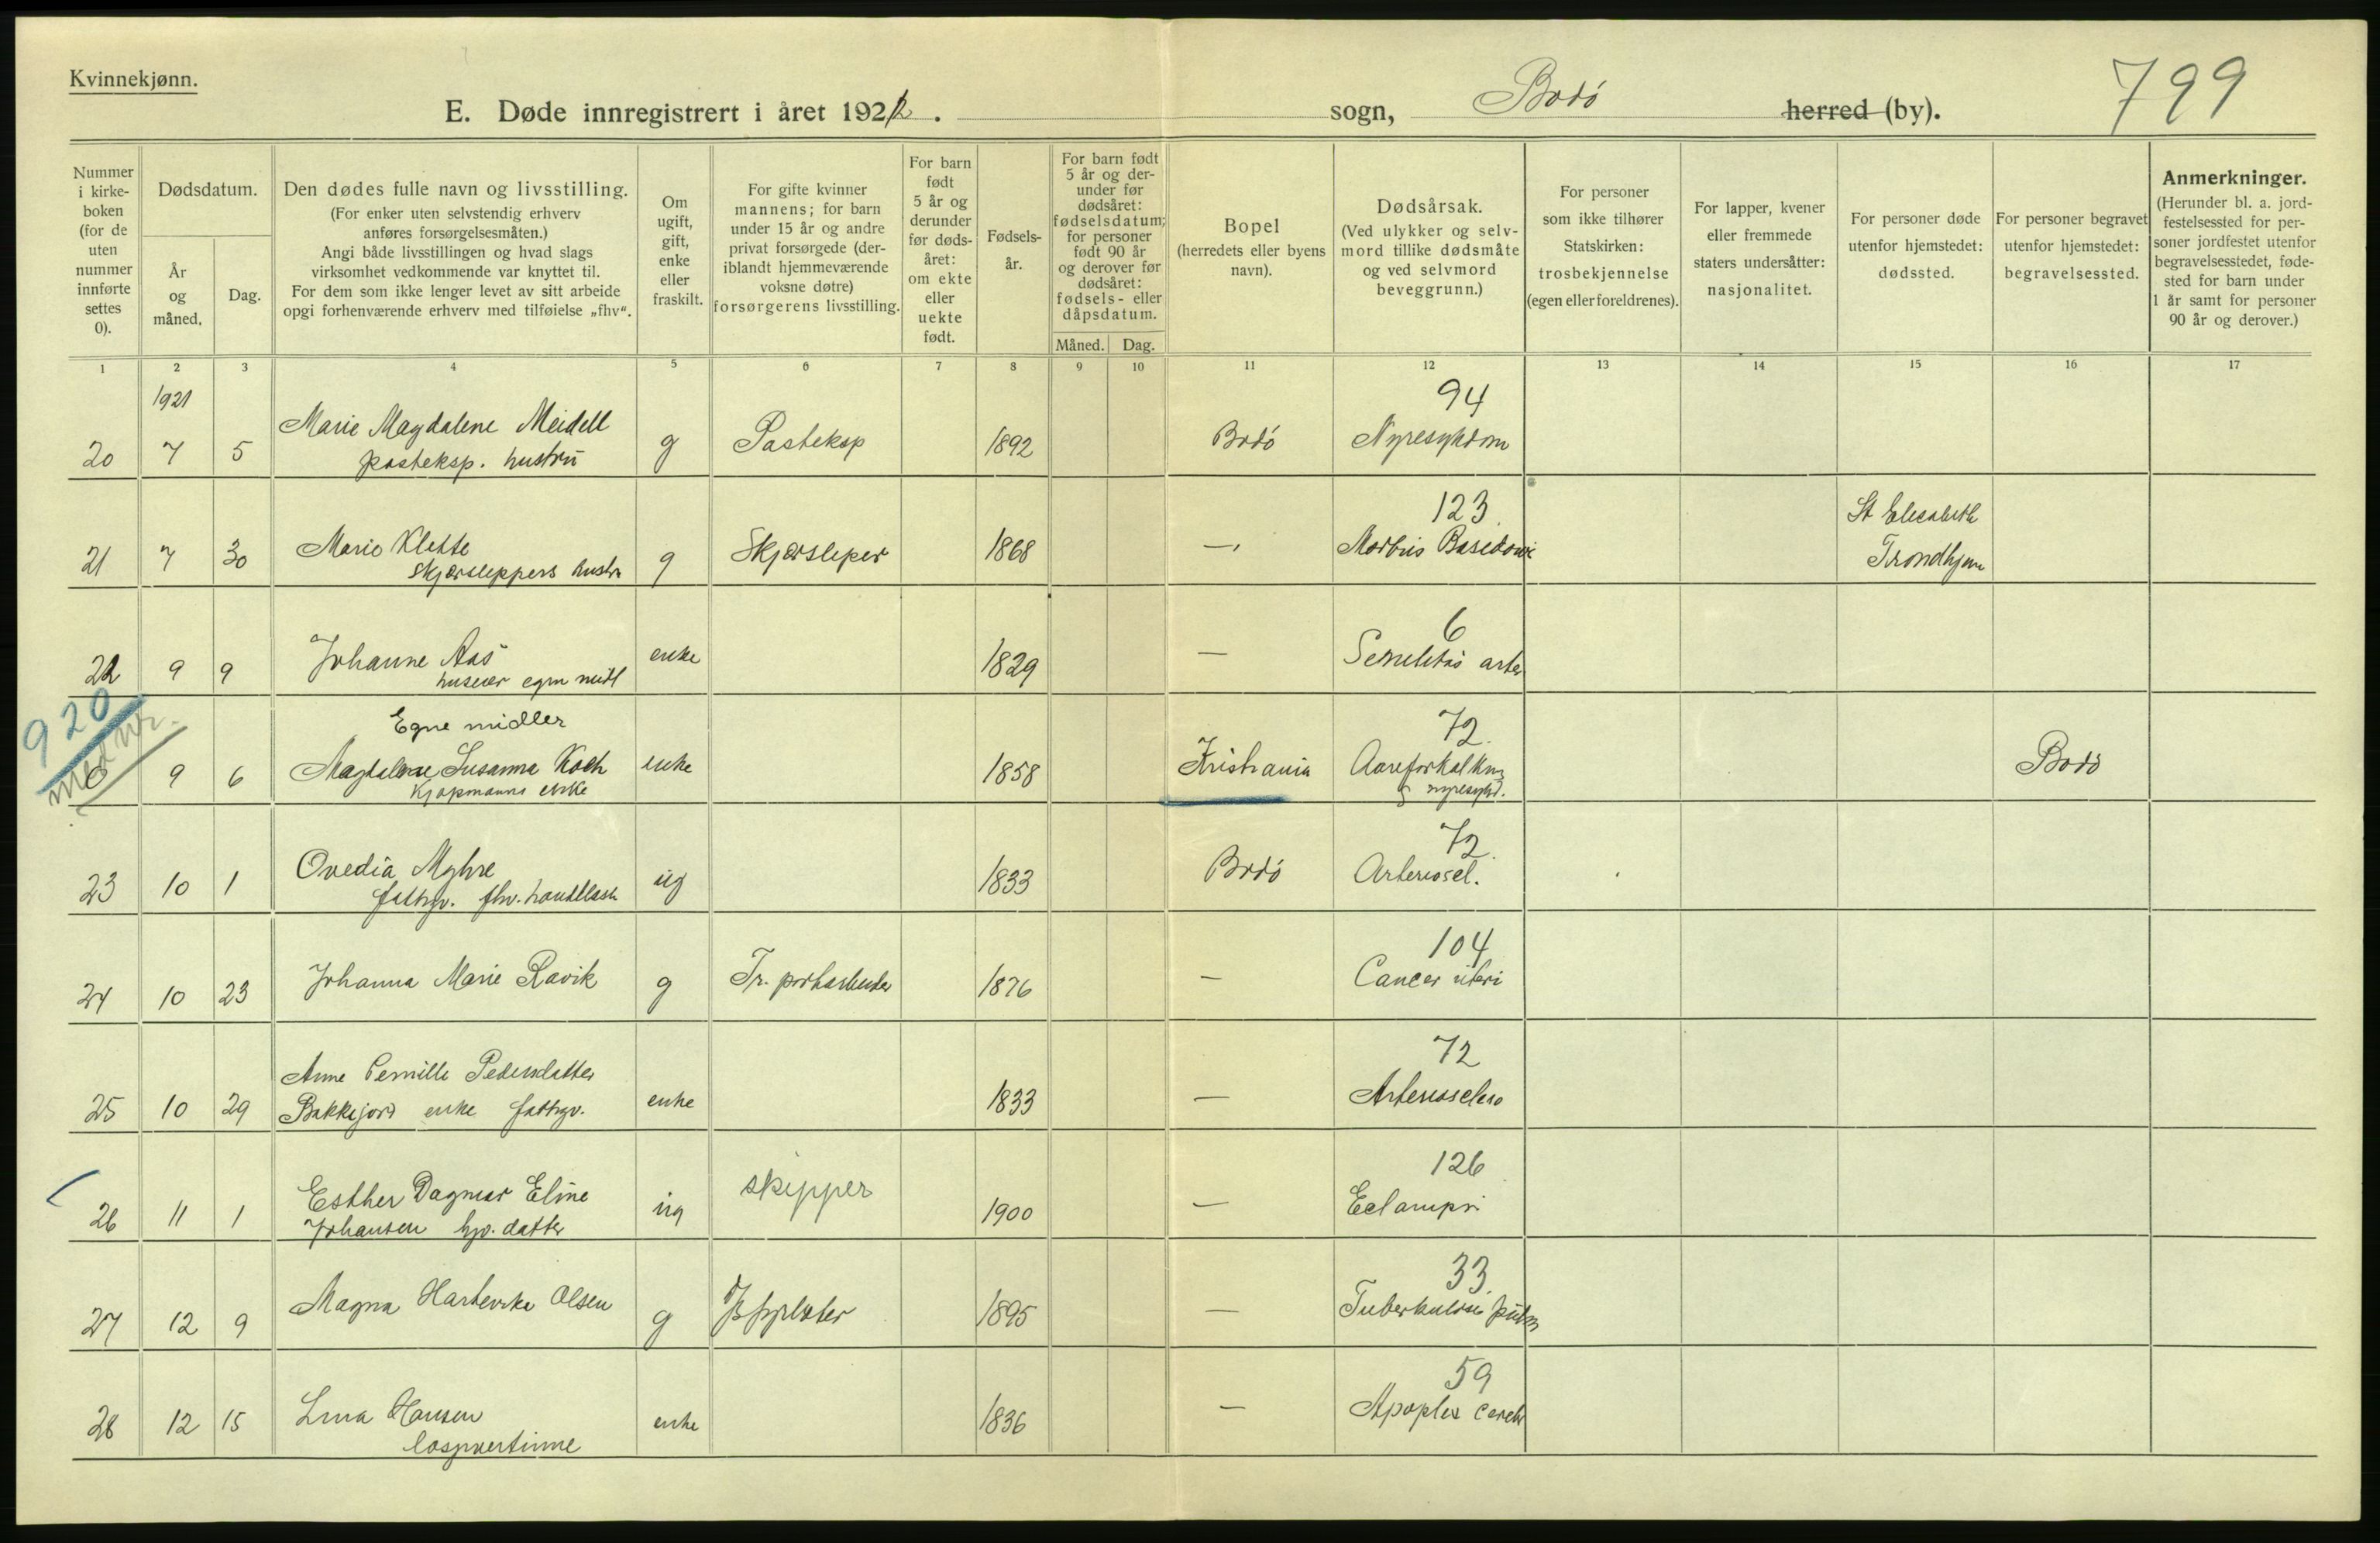 Kvinnekjønn.
E. Døde innregistrert i året 1921. sogn, Bodó herred (by). 799
Nummer i kirke-boken (for de uten nummer innførte settes 0).
Dødsdatum.
År og måned.
Dag.
Den dødes fulle navn og livsstilling.
(For enker uten selvstendig erhverv anføres forsørgelsesmåten.)
Angi både livsstillingen og hvad slags virksomhet vedkommende var knyttet til.
For dem som ikke lenger levet av sitt arbeide opgi forhenværende erhverv med tilføielse „fhv“.
Om ugift, gift, enke eller fraskilt.
For gifte kvinner mannens; for barn under 15 år og andre privat forsørgede (der-iblandt hjemmeværende voksne døtre) forsørgerens livsstilling.
For barn født 5 år og derunder før døds-året: om ekte eller uekte født.
Fødsels-år.
For barn født 5 år og der-under før dødsåret: fødselsdatum; for personer født 90 år og derover før dødsåret: fødsels- eller dåpsdatum.
Måned. Dag.
Bopel (herredets eller byens navn).
Dødsårsak. (Ved ulykker og selv-mord tillike dødsmåte og ved selvmord beveggrunn.)
For personer som ikke tilhører Statskirken: trosbekjennelse (egen eller foreldrenes).
For lapper, kvener eller fremmede staters undersåtter: nasjonalitet.
For personer døde utenfor hjemstedet: dødssted.
For personer begravet utenfor hjemstedet: begravelsessted.
Anmerkninger. (Herunder bl. a. jord-festelsessted for per-soner jordfestet utenfor begravelsesstedet, føde-sted for barn under 1 år samt for personer 90 år og derover.)
1 2 3 4 5 6 7 8 9 10 11 12 13 14 15 16 17
1921
94
20 7 5 Marie Magdalene Meidell g Posteksp 1892 Bodó Nyresykdom
posteksp. hustru
123
St Elisabeth
21 7 30 Marie Klette g Skjærsleper 1868 — Morbus Basedowi Trondhjem
skjærsleppers hustru
6
22 9 9 Johanne Aas enke 1829 — Senilitas arter
huseier egne midl
920
med nr.
Egne midler
72
0 9 6 Magdalene Susanna Koch enke 1858 Kristiania Aareforkalkn Bodó
Kjøpmanns enke
g nyresykd.
72
23 10 1 Ovedia Myhre ug 1833 Bodó Arterioscl.
fattigv. fhv.
104
24 10 23 Johanna Marie Ravik g Tr. portarbeider 1876 — Cancer uteri
72
25 10 29 Anne Pernille Pedersdatter enke 1833 — Arteriosclero
Bakkejord enke fattigv.
126
26 11 1 Esther Dagmar Eline ug skipper 1900 — Eclampsi
Johansen hjv. datter
33
27 12 9 Magna Olsen g 1895 — Tuberkulose pulm
59
28 12 15 Lina Hansen enke 1836 — Apoplex cerebr
losjivertinne